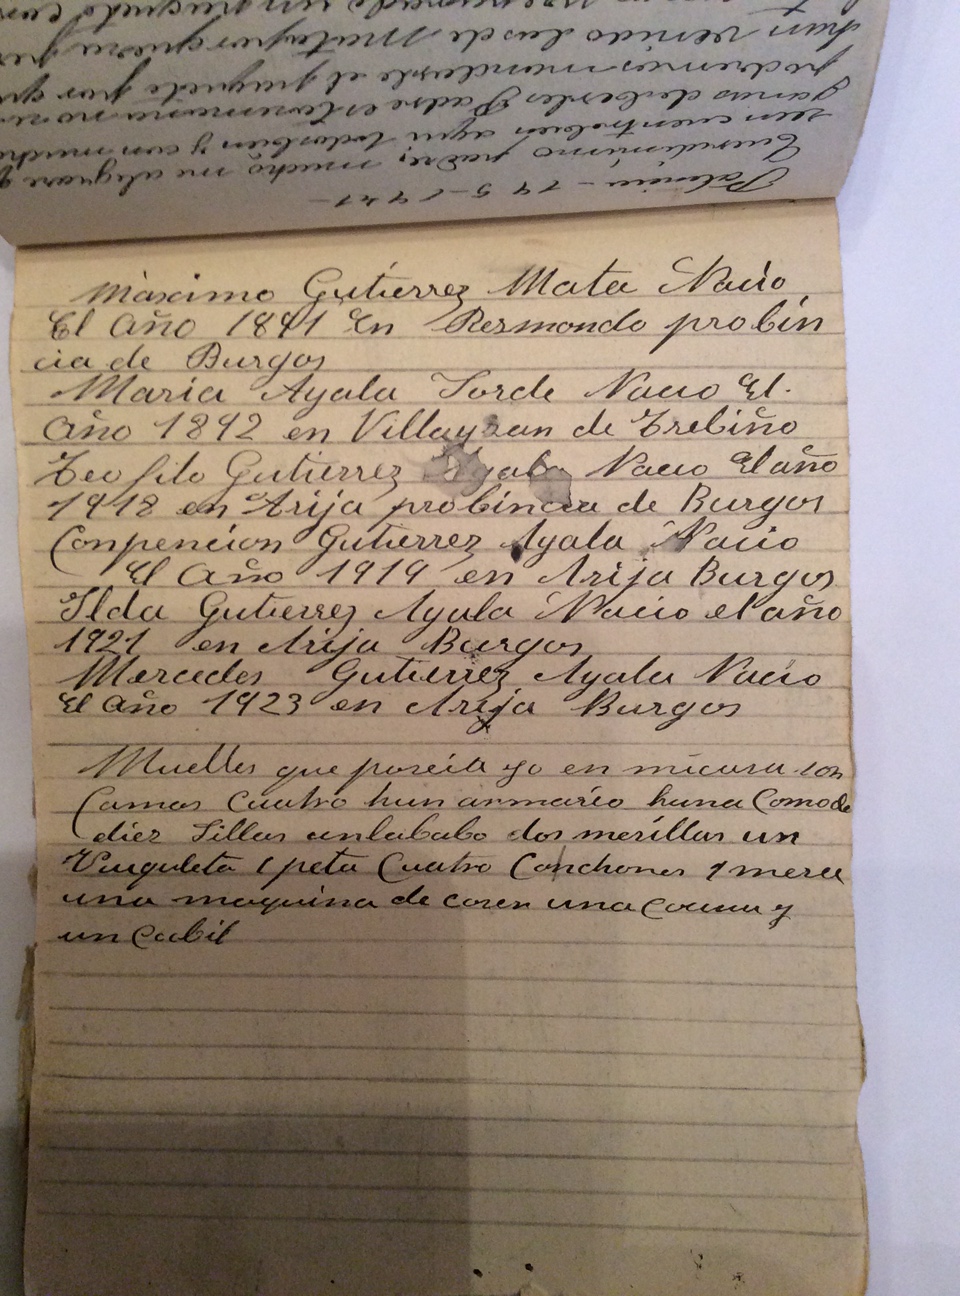 Palencia - 19 5-1941 -
Queridisimo padre; mucho me alegrare
seen cuentrebien aqui todosbien y con mucha
ganas deberles Padre estasemana no
podremos mandarle el paquete por que
han venido las de Mataporquera
un paquete con
Máximo Gutierrez Mata Nacio
El Año 1891 En Rezmondo probin
cia de Burgos
Maria Ayala Torde Nacio El.
Año 1892 en Villaysan de Trebiño
Teofilo Gutierrez Ayala Nacio El año
1918 en Arija probincia de Burgos
Conpencion Gutierrez Ayala Nacio
El Año 1919 en Arija Burgos
Ilda Gutierrez Ayala Nacio el año
1921 en Arija Burgos
Mercedes Gutierrez Ayala Nacio
El Año 1923 en Arija Burgos
Muelles que poseia yo en micasa son
Camas Cuatro hun armario huna Comoda
diez Sillas unlababo dos mesillas un
Cuatro Conchones 1 mesa
una maquina de coser una cocina y
un Cubil